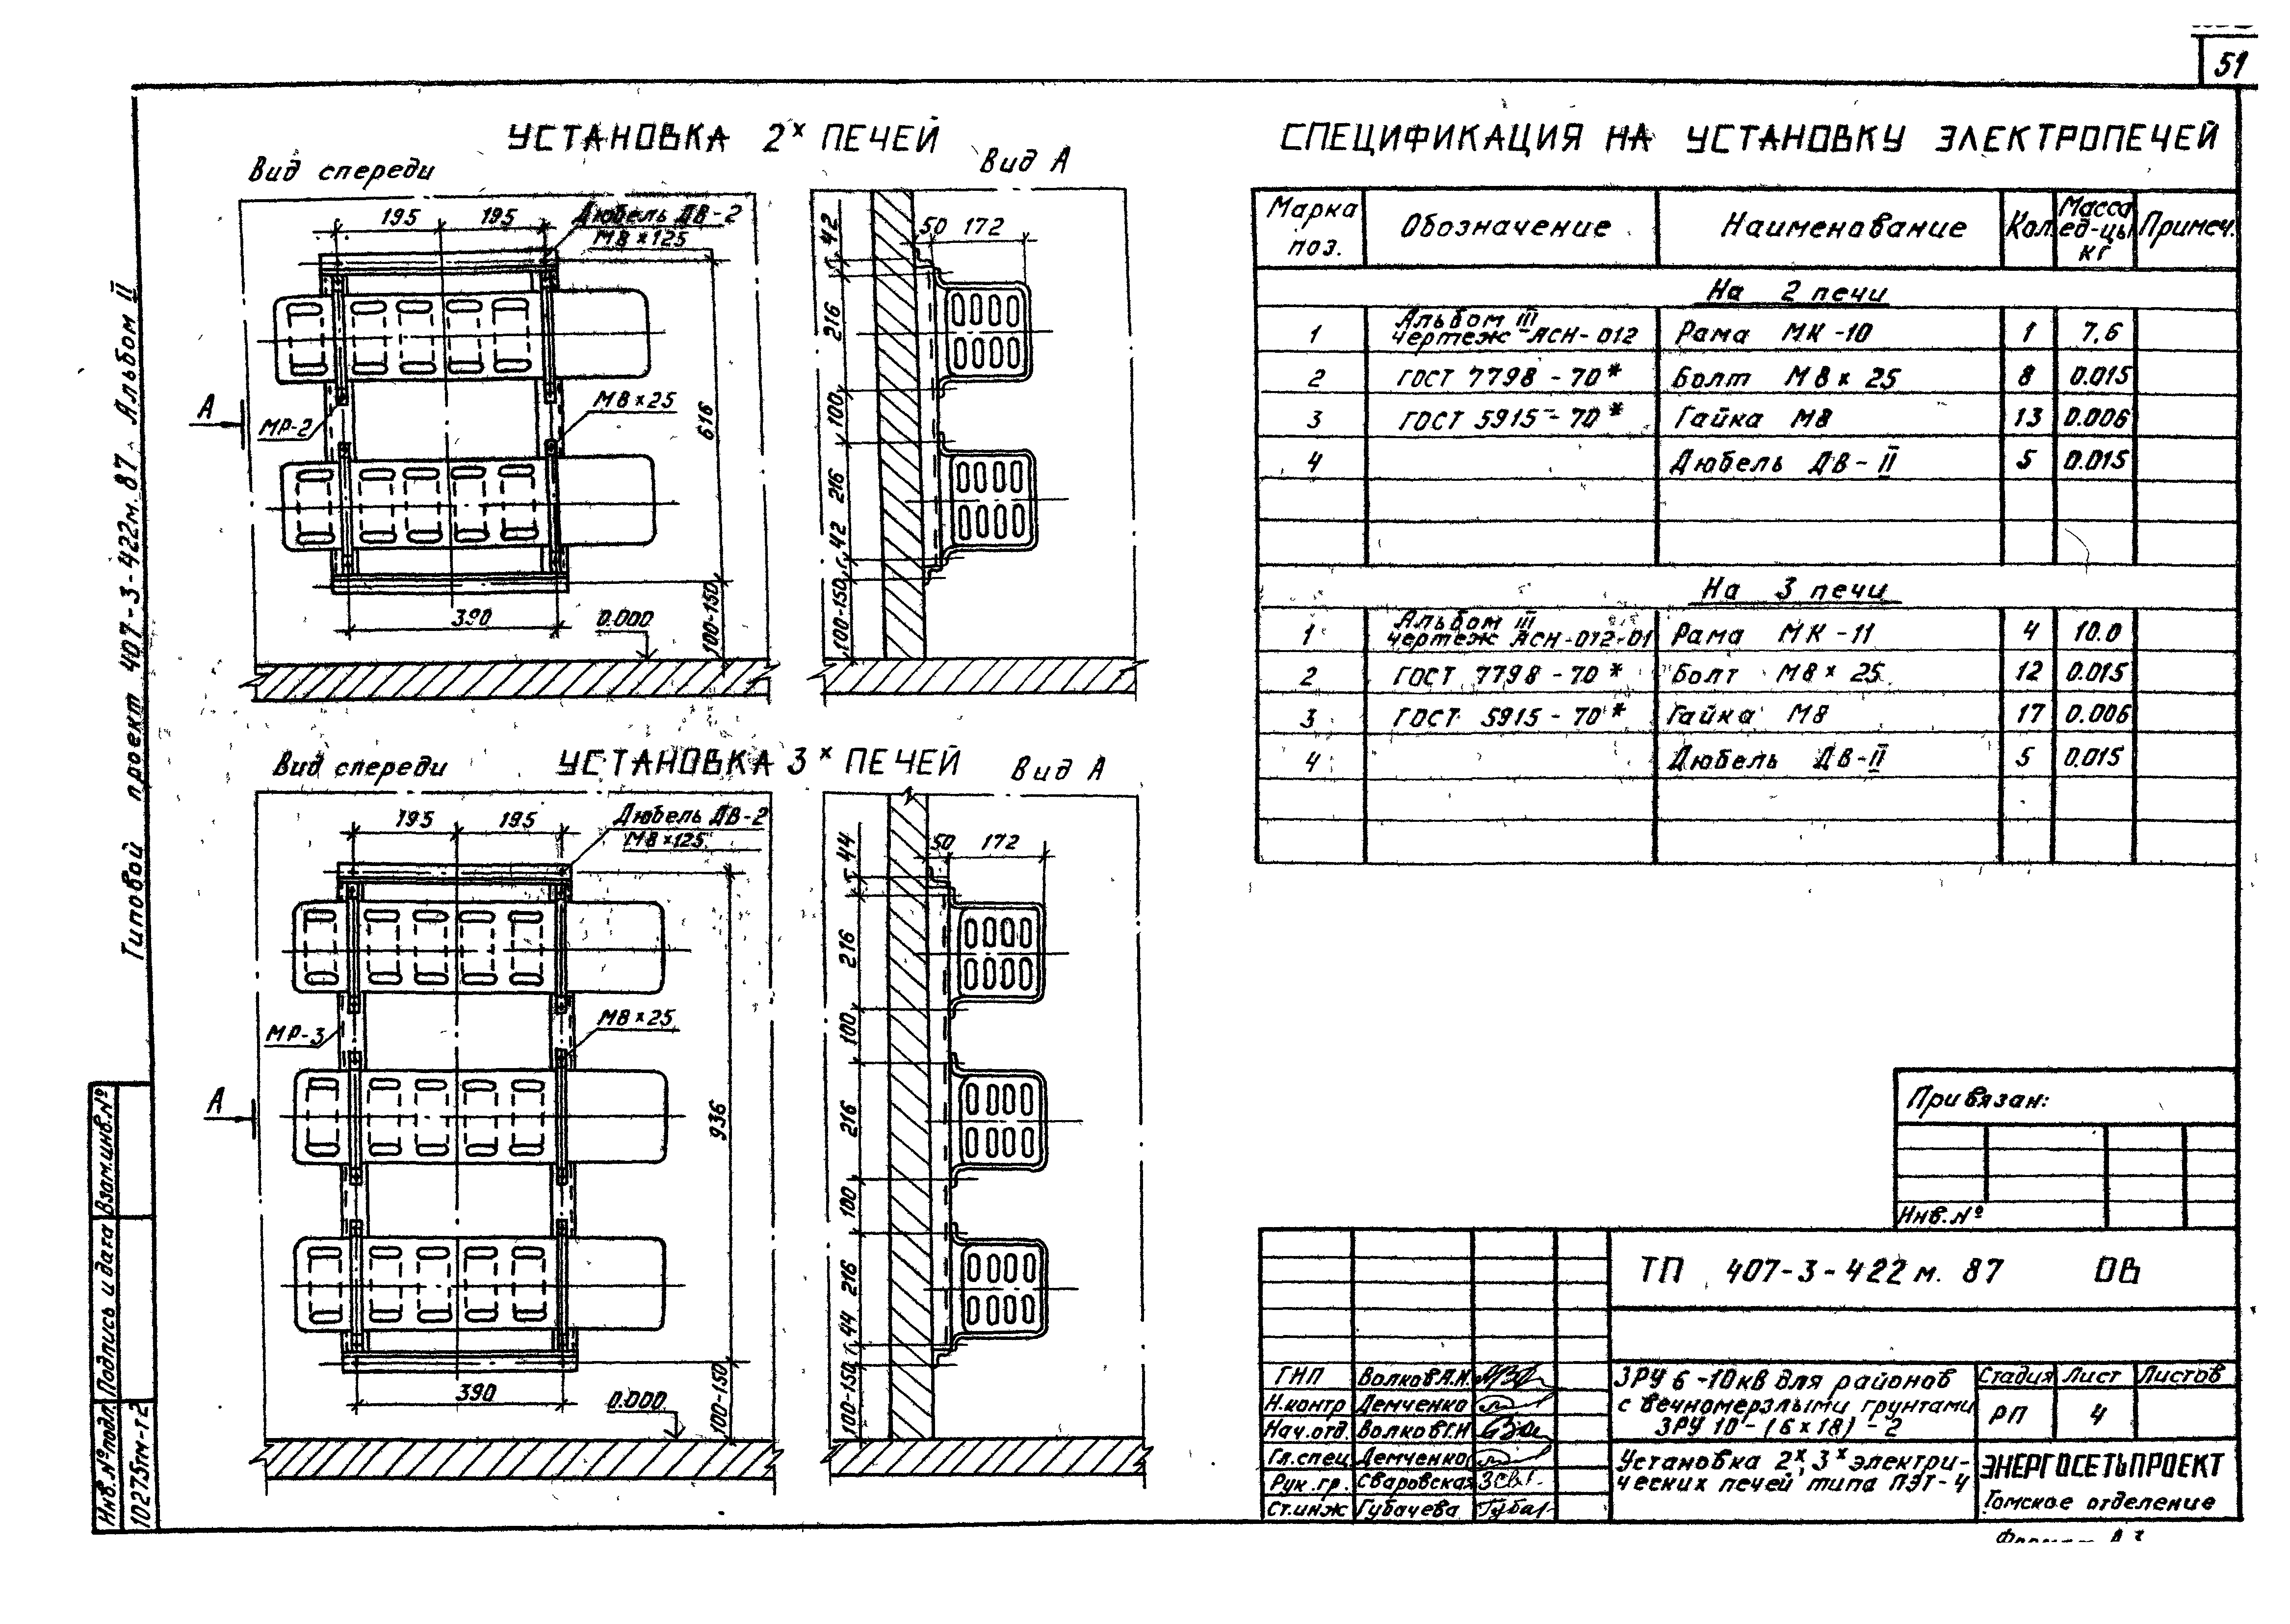 51
УСТАНОВКА 2х ПЕЧЕЙ
Вид спереди
Вид А
195 195
Дюбель ДВ-2
М8×125
МР-2
М8×25
А
616
390
0.000
100-150
50 172
42
216
100
216
42
100-150
УСТАНОВКА 3х ПЕЧЕЙ
Вид спереди
Вид А
195 195
Дюбель ДВ-2
М8×125
МР-3
М8×25
А
936
390
0.000
100-150
50 172
44
216
100
216
100
216
44
100-150
СПЕЦИФИКАЦИЯ НА УСТАНОВКУ ЭЛЕКТРОПЕЧЕЙ
Марка поз. Обозначение Наименование Кол. Масса ед-цы кг Примеч.
На 2 печи
1 Альбом III чертеж АСН-012 Рама МК-10 1 7,6
2 ГОСТ 7798-70* Болт М8×25 8 0.015
3 ГОСТ 5915-70* Гайка М8 13 0.006
4 Дюбель ДВ-II 5 0.015
На 3 печи
1 Альбом III чертеж АСН-012-01 Рама МК-11 4 10.0
2 ГОСТ 7798-70* Болт М8×25 12 0.015
3 ГОСТ 5915-70* Гайка М8 17 0.006
4 Дюбель ДВ-II 5 0.015
Привязан:
Инв.№
ТП 407-3-422м.87 ОВ
ГИП Волков А.И.
Н.контр Демченко
Нач.отд. Волков Г.И
Гл.спец Демченко
Рук.гр. Сваровская
Ст.инж Губачева
ЗРУ 6-10кВ для районов
с вечномерзлыми грунтами
ЗРУ 10-(6×18)-2
Стадия Лист Листов
РП 4
Установка 2х, 3х электри-
ческих печей типа ПЭТ-4
ЭНЕРГОСЕТЬПРОЕКТ
Томское отделение
Формат А3
Типовой проект 407-3-422м.87 Альбом II
Взам.инв.№
Подпись и дата
Инв.№подл.
10275тм-т2